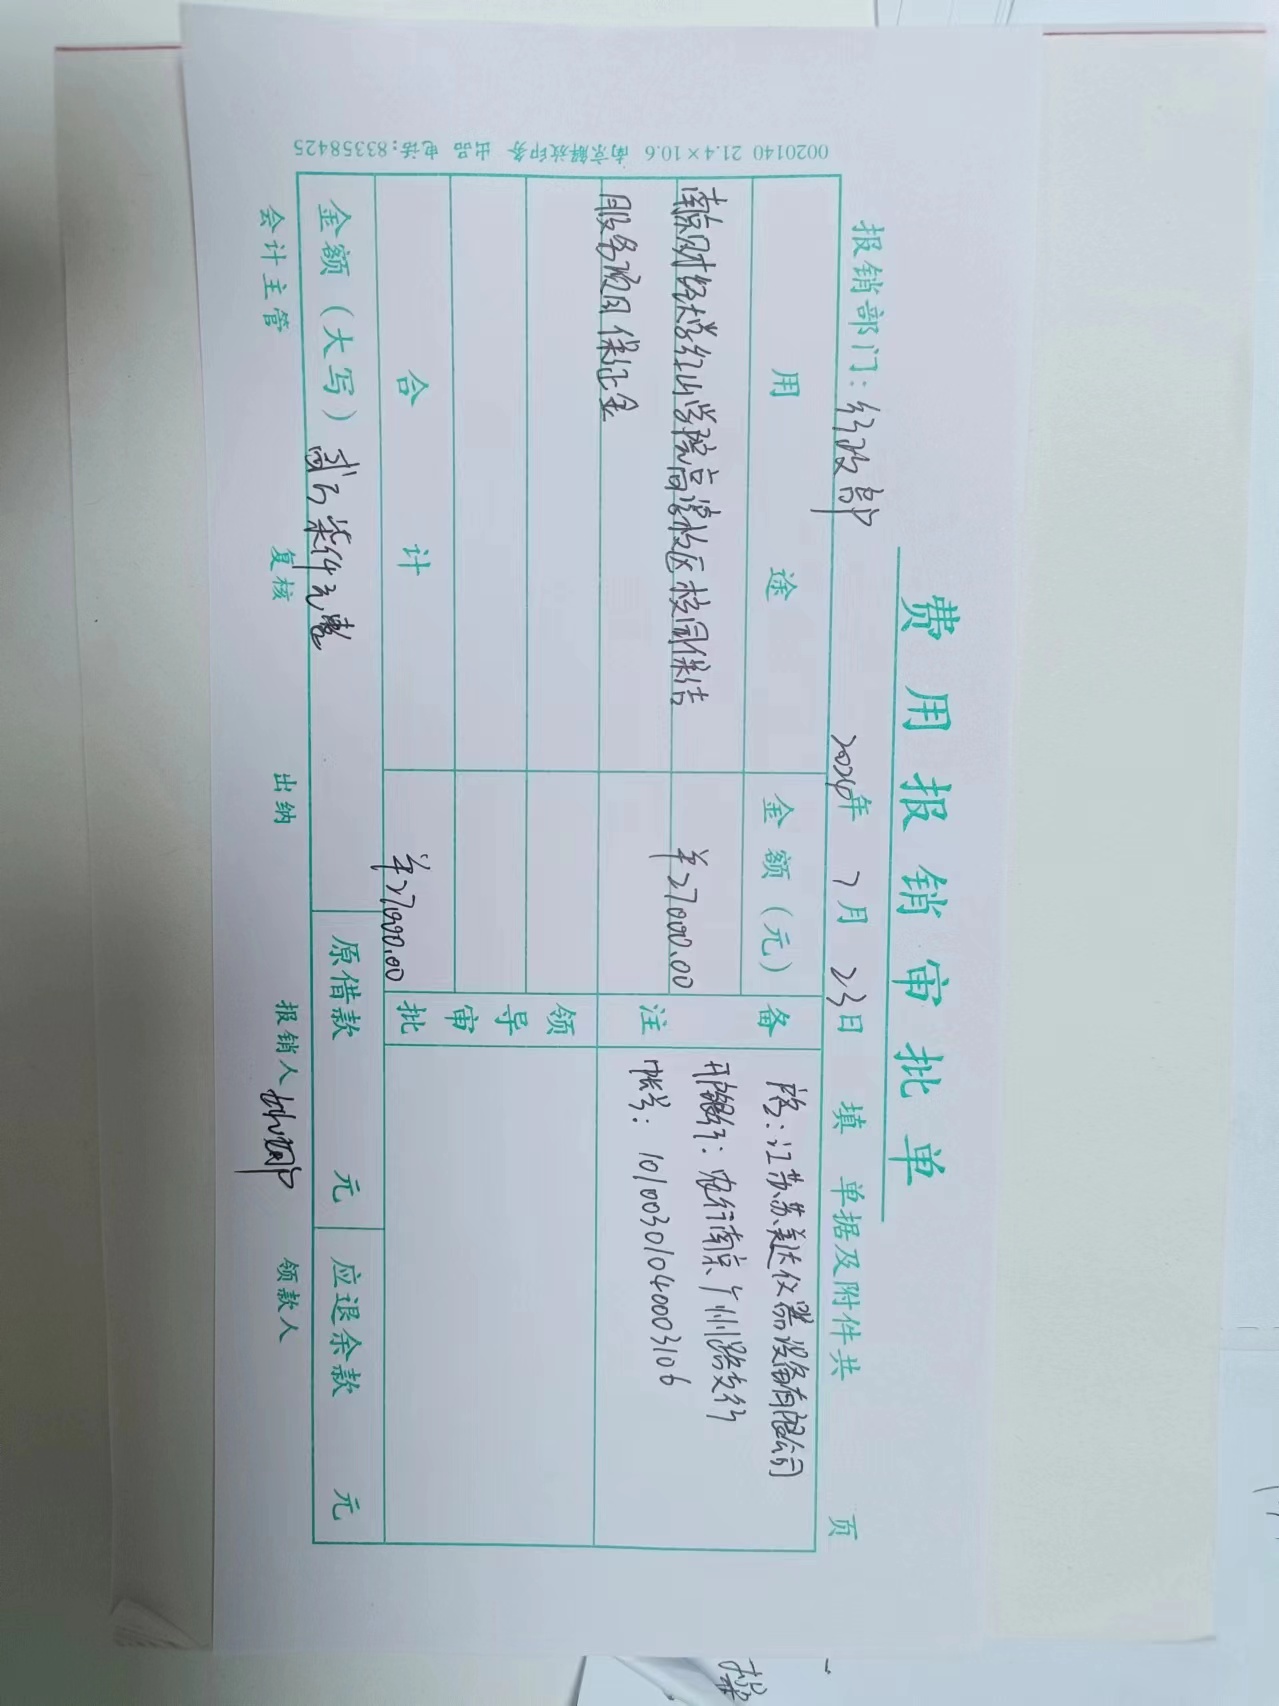 费用报销审批单
报销部门：行政部 2024年 7月 23日 填 单据及附件共 页
用途 金额（元） 备注
南京财经大学红山学院高淳校区校园保洁 ¥27000.00
服务项目保证金
户名：江苏苏美达仪器设备有限公司
开户银行：农行南京广州路支行
帐号：10100301040003106
领导审批
合计 ¥27000.00
金额（大写）贰万柒仟元整 原借款 元 应退余款 元
会计主管 复核 出纳 报销人 领款人
0020140 21.4×10.6 南京解放印务 出品 电话:83358425